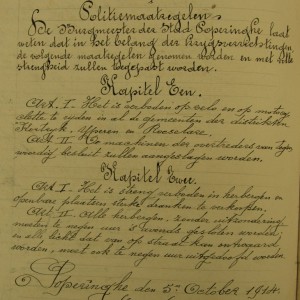 Politiemaatregelen
De Burgmeester der Stad Poperinghe laat
weten dat in het belang der Krijgsverrichtingen
de volgende maatregelen genomen worden en met alle
strengheid zullen toegepast worden.
Kapitel Een.
Art. I. Het is verboden op velo en op moto
te rijden in al de gemeenten der distrikten
Kortryk, Ypperen en Rousselare.
Art. II. De machienen der overtreders van tegen
besluit zullen aangeslagen worden.
Kapitel Twee.
Art. I. Het is streng verboden in herbergen en
openbare plaatsen sterke dranken te verkoopen.
Art. II. Alle herbergen, zonder uitzondering
moeten te negen uur 's avonds gesloten worden,
en alle licht dat van op straat kan ontwaard
worden, moet ook te negen uur uitgedoofd worden.
Poperinghe den 5n October 1914.